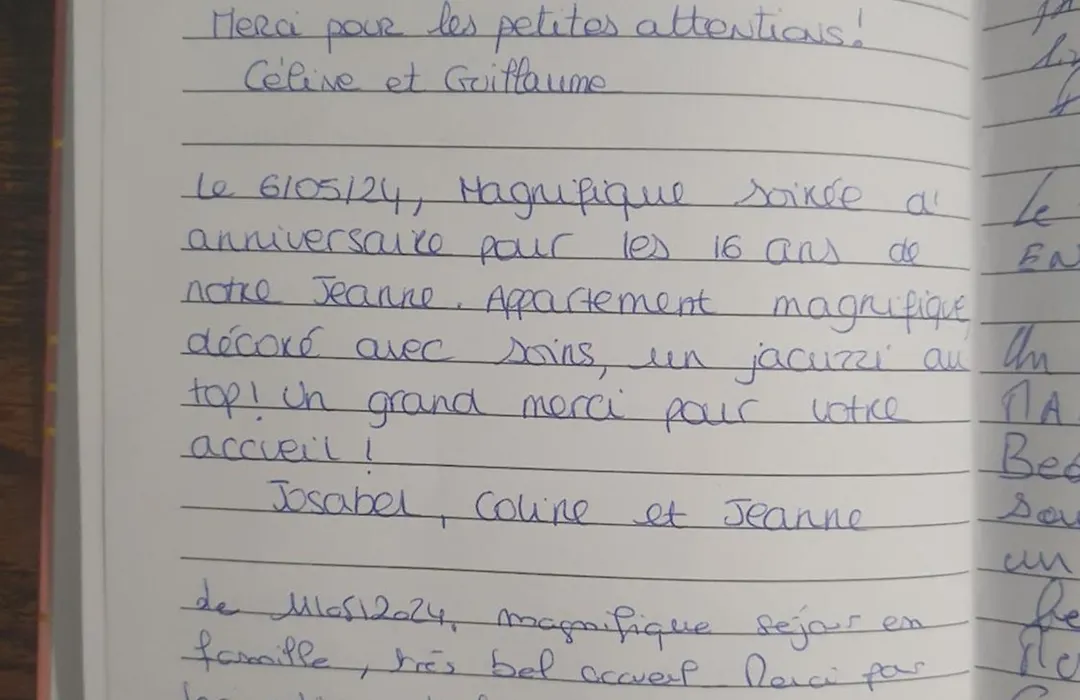 Merci pour les petites attentions!
Céline et Guillaume
Le 6/05/24, Magnifique soirée d'
anniversaire pour les 16 ans de
notre Jeanne. Appartement magnifique,
décoré avec soins, un jacuzzi au
top! Un grand merci pour votre
accueil!
Josabel, Coline et Jeanne
de 11/05/2024, magnifique séjour en
famille, très bel accueil Merci pour
Le
EN
Un
MA
Bea
sou
un